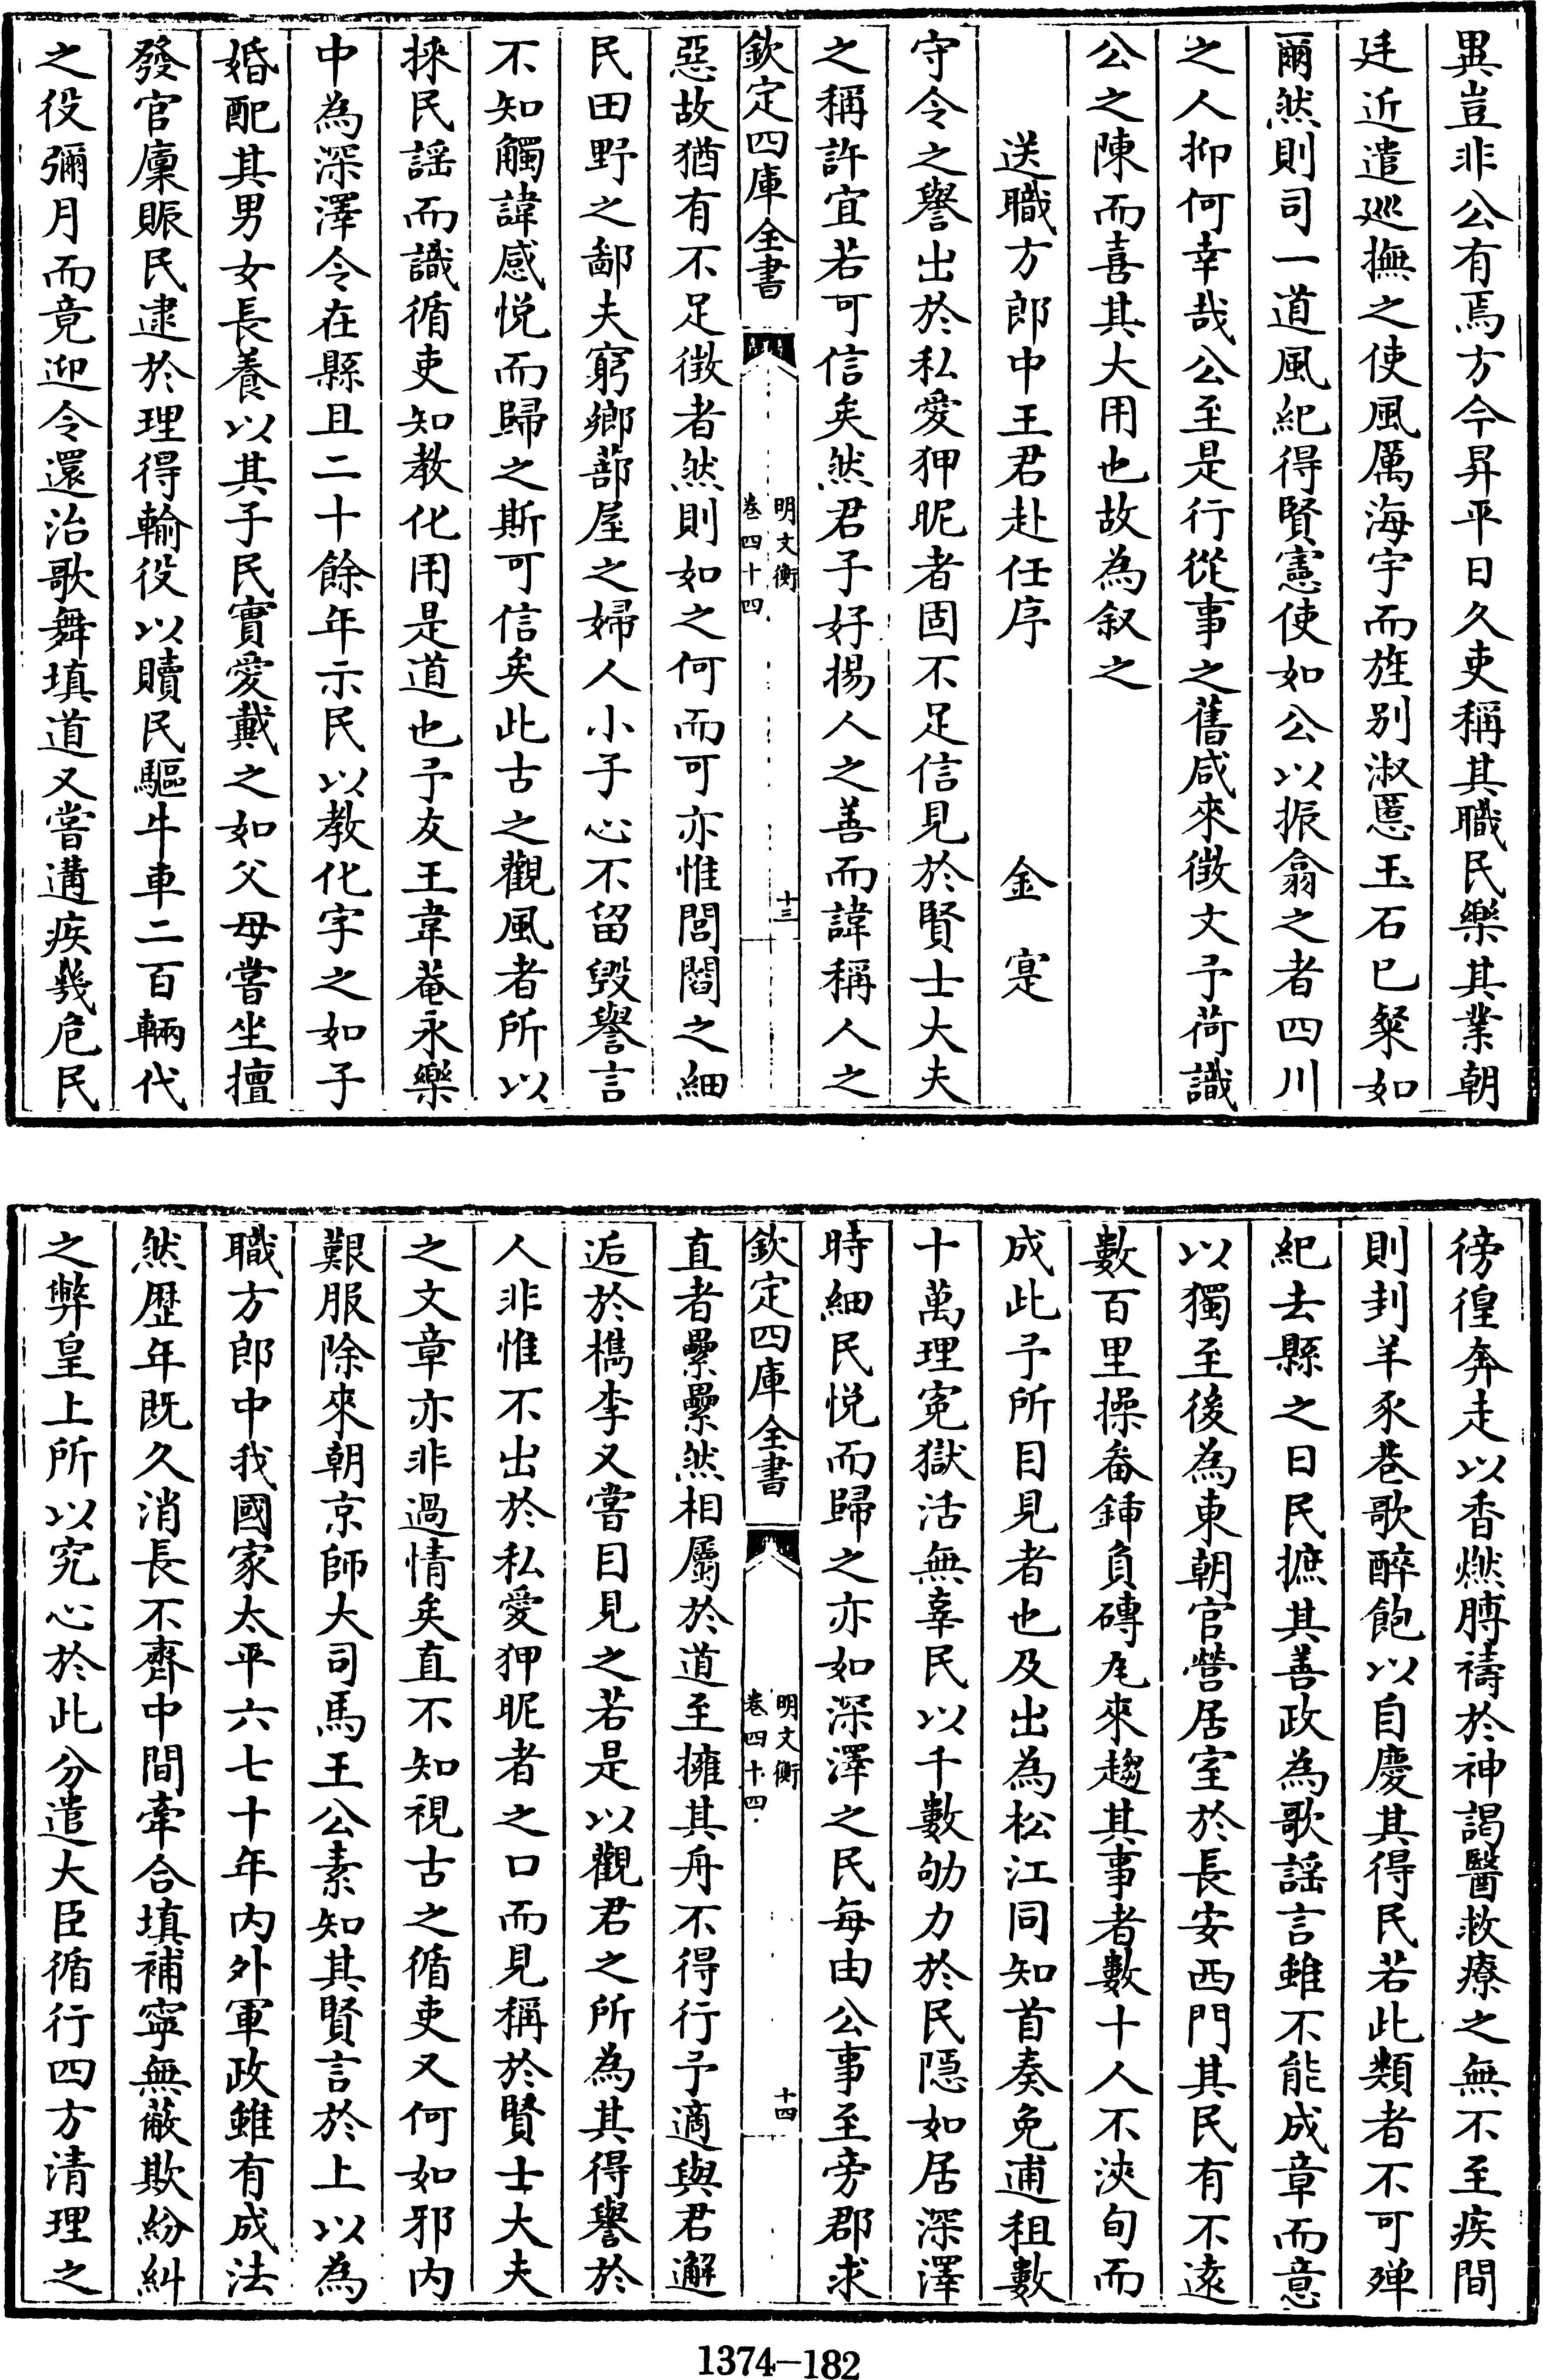 異豈非公有焉方今昇平日久吏稱其職民樂其業朝
廷近遣巡撫之使風厲海宇而旌别淑慝玉石已粲如
爾然則司一道風紀得賢憲使如公以振翕之者四川
之人抑何幸哉公至是行從事之舊咸來徴文予荷識
公之陳而喜其大用也故為叙之
送職方郎中王君赴任序 金寔
守令之譽出於私愛狎昵者固不足信見於賢士大夫
之稱許宜若可信矣然君子好揚人之善而諱稱人之
欽定四庫全書 明文衡 卷四十四 十三
惡故猶有不足徴者然則如之何而可亦惟閭閻之細
民田野之鄙夫窮鄉蔀屋之婦人小子心不留毀譽言
不知觸諱感悦而歸之斯可信矣此古之觀風者所以
採民謡而識循吏知教化用是道也予友王韋菴永樂
中為深澤令在縣且二十餘年示民以教化字之如子
婚配其男女長養以其子民實愛戴之如父母嘗坐擅
發官廩賑民逮於理得輸役以贖民驅牛車二百輛代
之役彌月而竟迎令還治歌舞填道又嘗遘疾幾危民
徬徨奔走以香燃膊禱於神謁醫救療之無不至疾間
則刲羊豕巷歌醉飽以自慶其得民若此類者不可殫
紀去縣之日民摭其善政為歌謡言雖不能成章而意
以獨至後為東朝官營居室於長安西門其民有不逺
數百里操畚鍤負磚瓦來趨其事者數十人不浹旬而
成此予所目見者也及出為松江同知首奏免逋租數
十萬理寃獄活無辜民以千數劬力於民隱如居深澤
時細民悦而歸之亦如深澤之民每由公事至旁郡求
欽定四庫全書 明文衡 卷四十四 十四
直者纍纍然相屬於道至擁其舟不得行予適與君邂
逅於檇李又嘗目見之若是以觀君之所為其得譽於
人非惟不出於私愛狎昵者之口而見稱於賢士大夫
之文章亦非過情矣直不知視古之循吏又何如邪内
艱服除來朝京師大司馬王公素知其賢言於上以為
職方郎中我國家太平六七十年内外軍政雖有成法
然歴年既久消長不齊中間牽合填補寜無蔽欺紛糾
之弊皇上所以究心於此分遣大臣循行四方清理之
1374-182